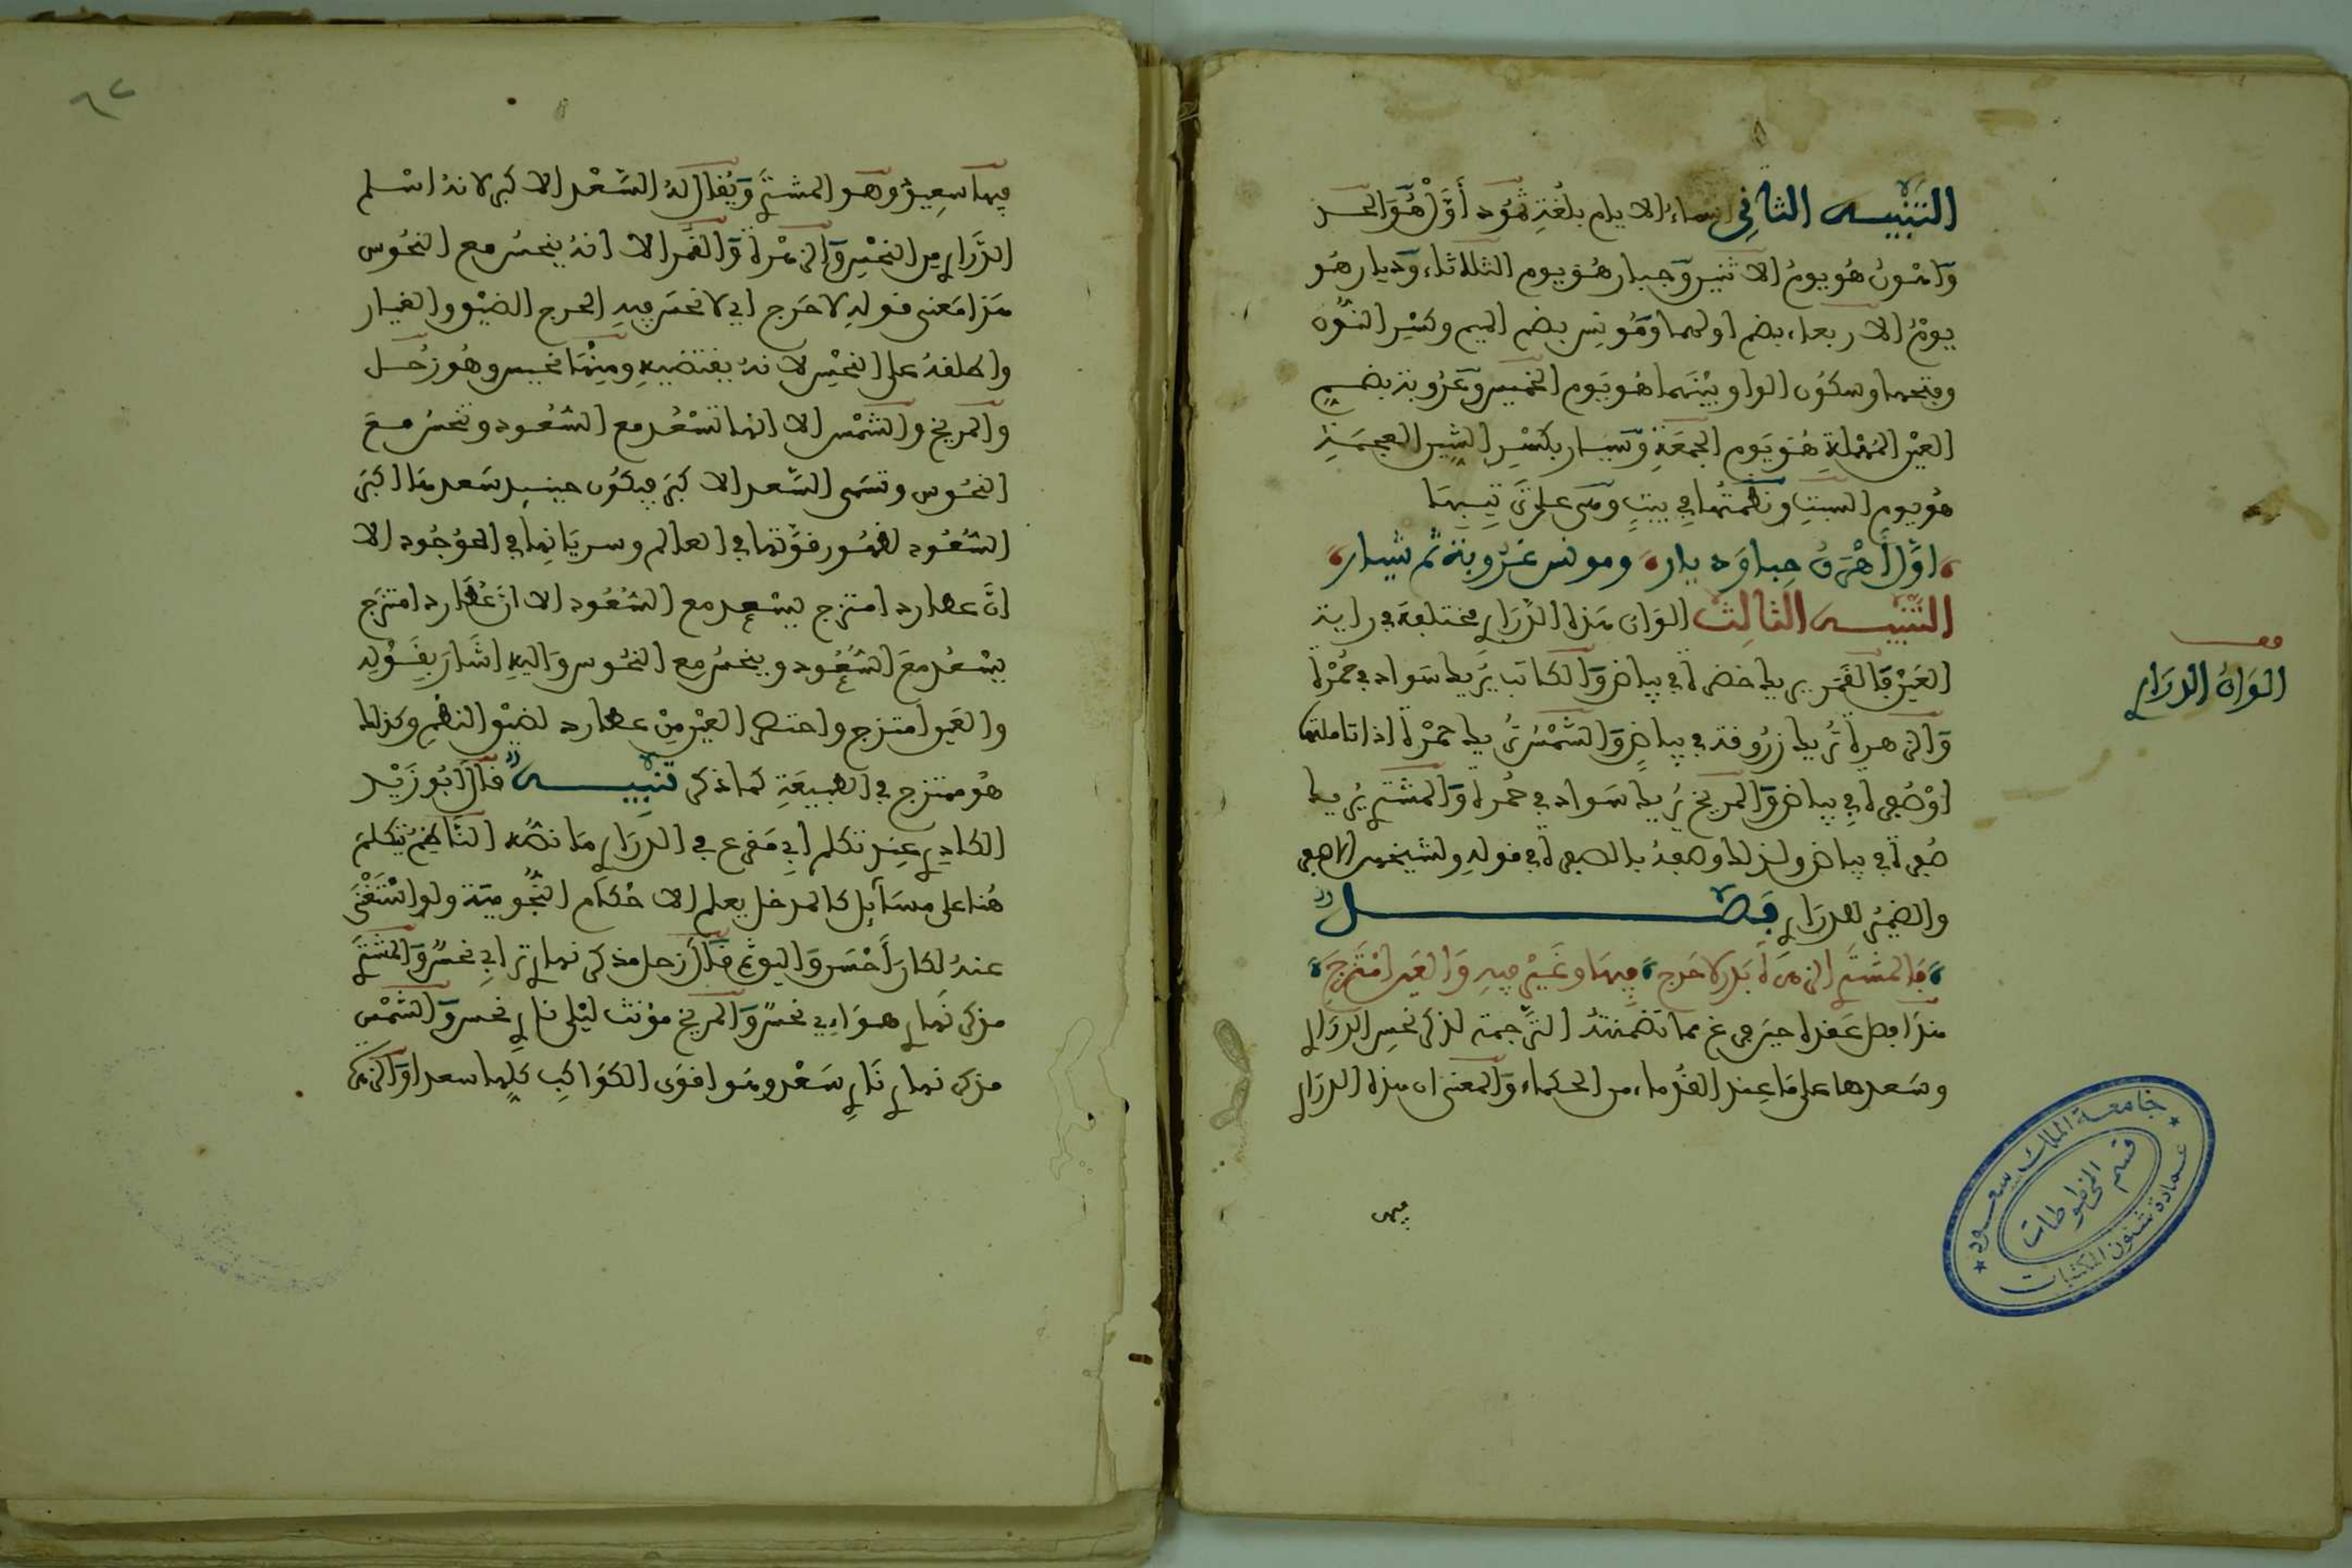 التنبيه الثاني اسماء الايام بلغة ثمود أول هو الاحد
وأهون هو يوم الاثنين وجبار هو يوم الثلاثاء ودبار هو
يوم الاربعاء بضم اولهما ومونس بضم الميم وكسر النون
وفتحها وسكون الواو بينهما هو يوم الخميس وعروبة بضم
العين المهملة هو يوم الجمعة وشيار بكسر الشين المعجمة
هو يوم السبت ونظمتها في بيت وهي على ترتيبها
اول أهون جبار دبار ومونس عروبة ثم شيار
التنبيه الثالث الوان هذه الدراري مختلفة في راية
العين فالقمر يريك خضرة في بياض والكاتب يريك سواد في حمرة
والزهرة تريك زروقة في بياض والشمس تريك حمرة اذا تاملتها
او صفرة في بياض والمريخ يريك سواد في حمرة والمشتري يريك
صفرة في بياض ولذلك وصفه بالصفرة في قوله ولشيخهم الاصفر
والضمير للدراري فصل
فالمشتري الزهرة بدر لا حرج فيها وغير فيه والغير امتزج
هذا فصل عقده حين فرغ مما تضمنته الترجمة لذكر نحس الدراري
وسعدها على ما عند القدماء من الحكماء والمعنى ان هذه الدراري
فيها
الوان الدراري
جامعة الملك سعود
قسم المخطوطات
عمادة شئون المكتبات
٦٢
فيها سعيد وهو المشتري ويقال له السعد الاكبر لانه اسلم
الدراري من النحس والزهرة والقمر الا انه ينحس مع النحوس
هذا معنى قوله لا حرج اي لا نحس فيه الحرج الضيق والغيار
واطلقه على النحس لانه يقتضيه ومنها نحيس وهو زحل
والمريخ والشمس الا انها تسعد مع السعود وتنحس مع
النحوس وتسمى السعد الاكبر فيكون حينيد سعدها اكبر
السعود لظهور قوتها في العالم وسريانها في الموجود الا
ان عطارد امتزج فيسعد مع السعود الا ان عطارد امتزج
يسعد مع السعود وينحس مع النحوس واليه اشار بقوله
والغير امتزج واختص الغير من عطارد لضيق النظم وكذلك
هو ممتزج في الطبيعة كما ذكر تنبيه قال ابو زيد
الكادي عند تكلم ابي مقرع في الدراري ما نصه الناظم تكلم
هنا على مسائل كالمدخل يعلم الاحكام النجومية ولو استغنى
عنه لكان احسن واليوم قال زحل مذكر نهاري ترابي نحس والمشتري
مذكر نهاري هوائي نحس والمريخ مؤنث ليلي ناري نحس والشمس
مذكر نهاري ناري سعد وهو اقوى الكواكب كلها سعدا والزهرة